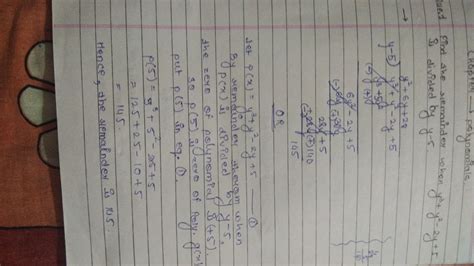 polynomials
Find the remainder when y³+y²-2y+5
is divided by y-5
→
y²+6y+28
y-5) y³+y²-2y+5
6y²-2y+5
28y+5
145
OR
let p(x) = y³+y²-2y+5 — ①
By remainder theorem when
p(x) is divided by y-5,
the zero of polynomial is (+5)
so p(5) is zero of poly. g(x)
put p(5) in eq. ①.
= 125+25-10+5
= 145
Hence, the remainder is 145